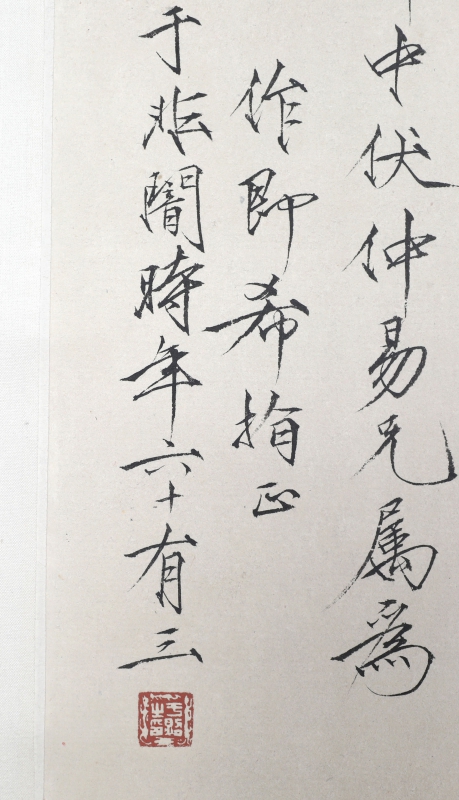 中伏仲易兄属為
作即希指正
于非闇時年六十有三